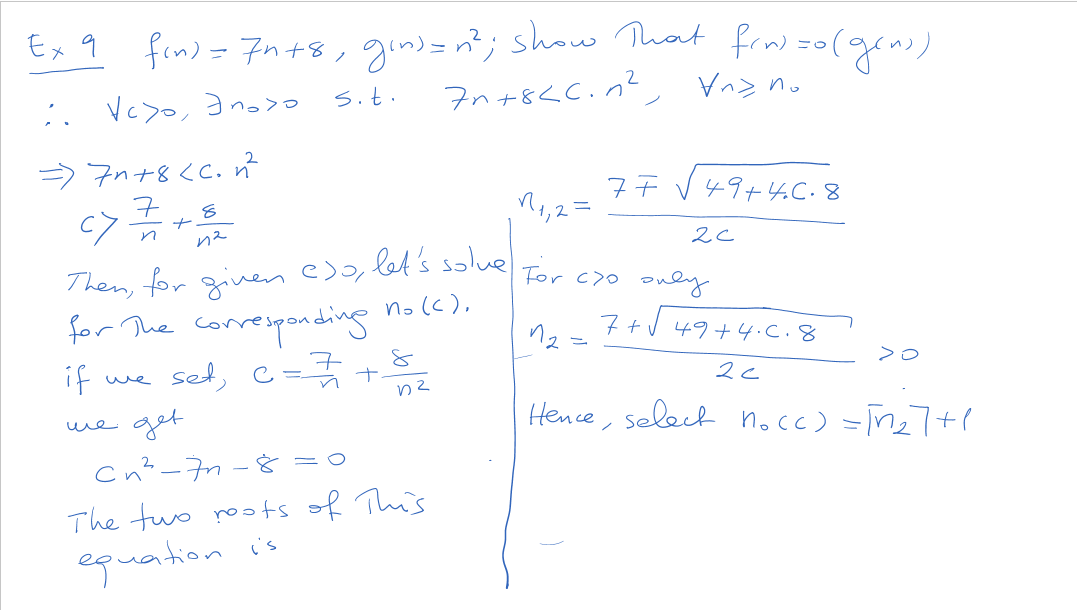 Ex 9 f(n) = 7n+8, g(n) = n²; show That f(n) = o(g(n))
∴ ∀c>0, ∃n₀>0 s.t. 7n+8<C.n², ∀n≥n₀
⇒ 7n+8<C.n²
c> 7/n + 8/n²
Then, for given c>0, let's solve
for The corresponding n₀(c).
if we set, c = 7/n + 8/n²
we get
cn² - 7n - 8 = 0
The two roots of This
equation is
n₁,₂ = (7 ∓ √(49+4.C.8)) / 2c
For c>0 only
n₂ = (7+√(49+4.C.8)) / 2c >0
Hence, select n₀(c) = ⌈n₂⌉+1